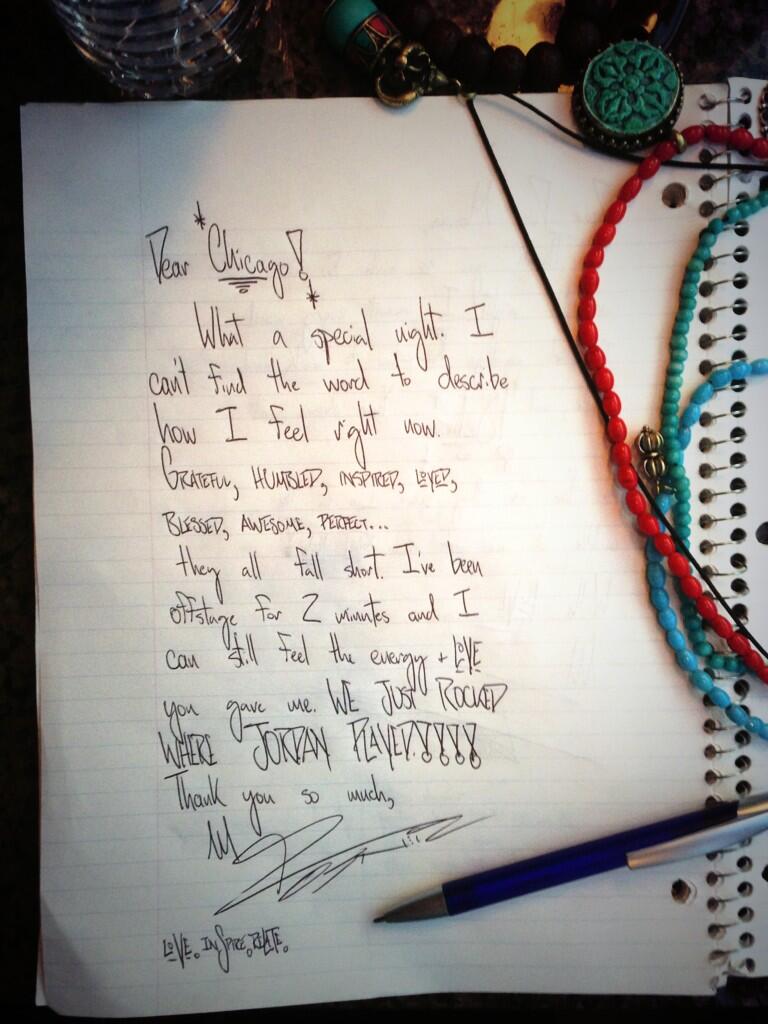 Dear *Chicago!*
What a special night. I
can't find the word to describe
how I feel right now.
GRATEFUL, HUMBLED, INSPIRED, LOVED,
BLESSED, AWESOME, PERFECT...
they all fall short. I've been
offstage for 2 minutes and I
can still feel the energy + LOVE
you gave me. WE JUST ROCKED
WHERE JORDAN PLAYED!!!!!
Thank you so much,
LOVE. INSPIRE. RELATE.